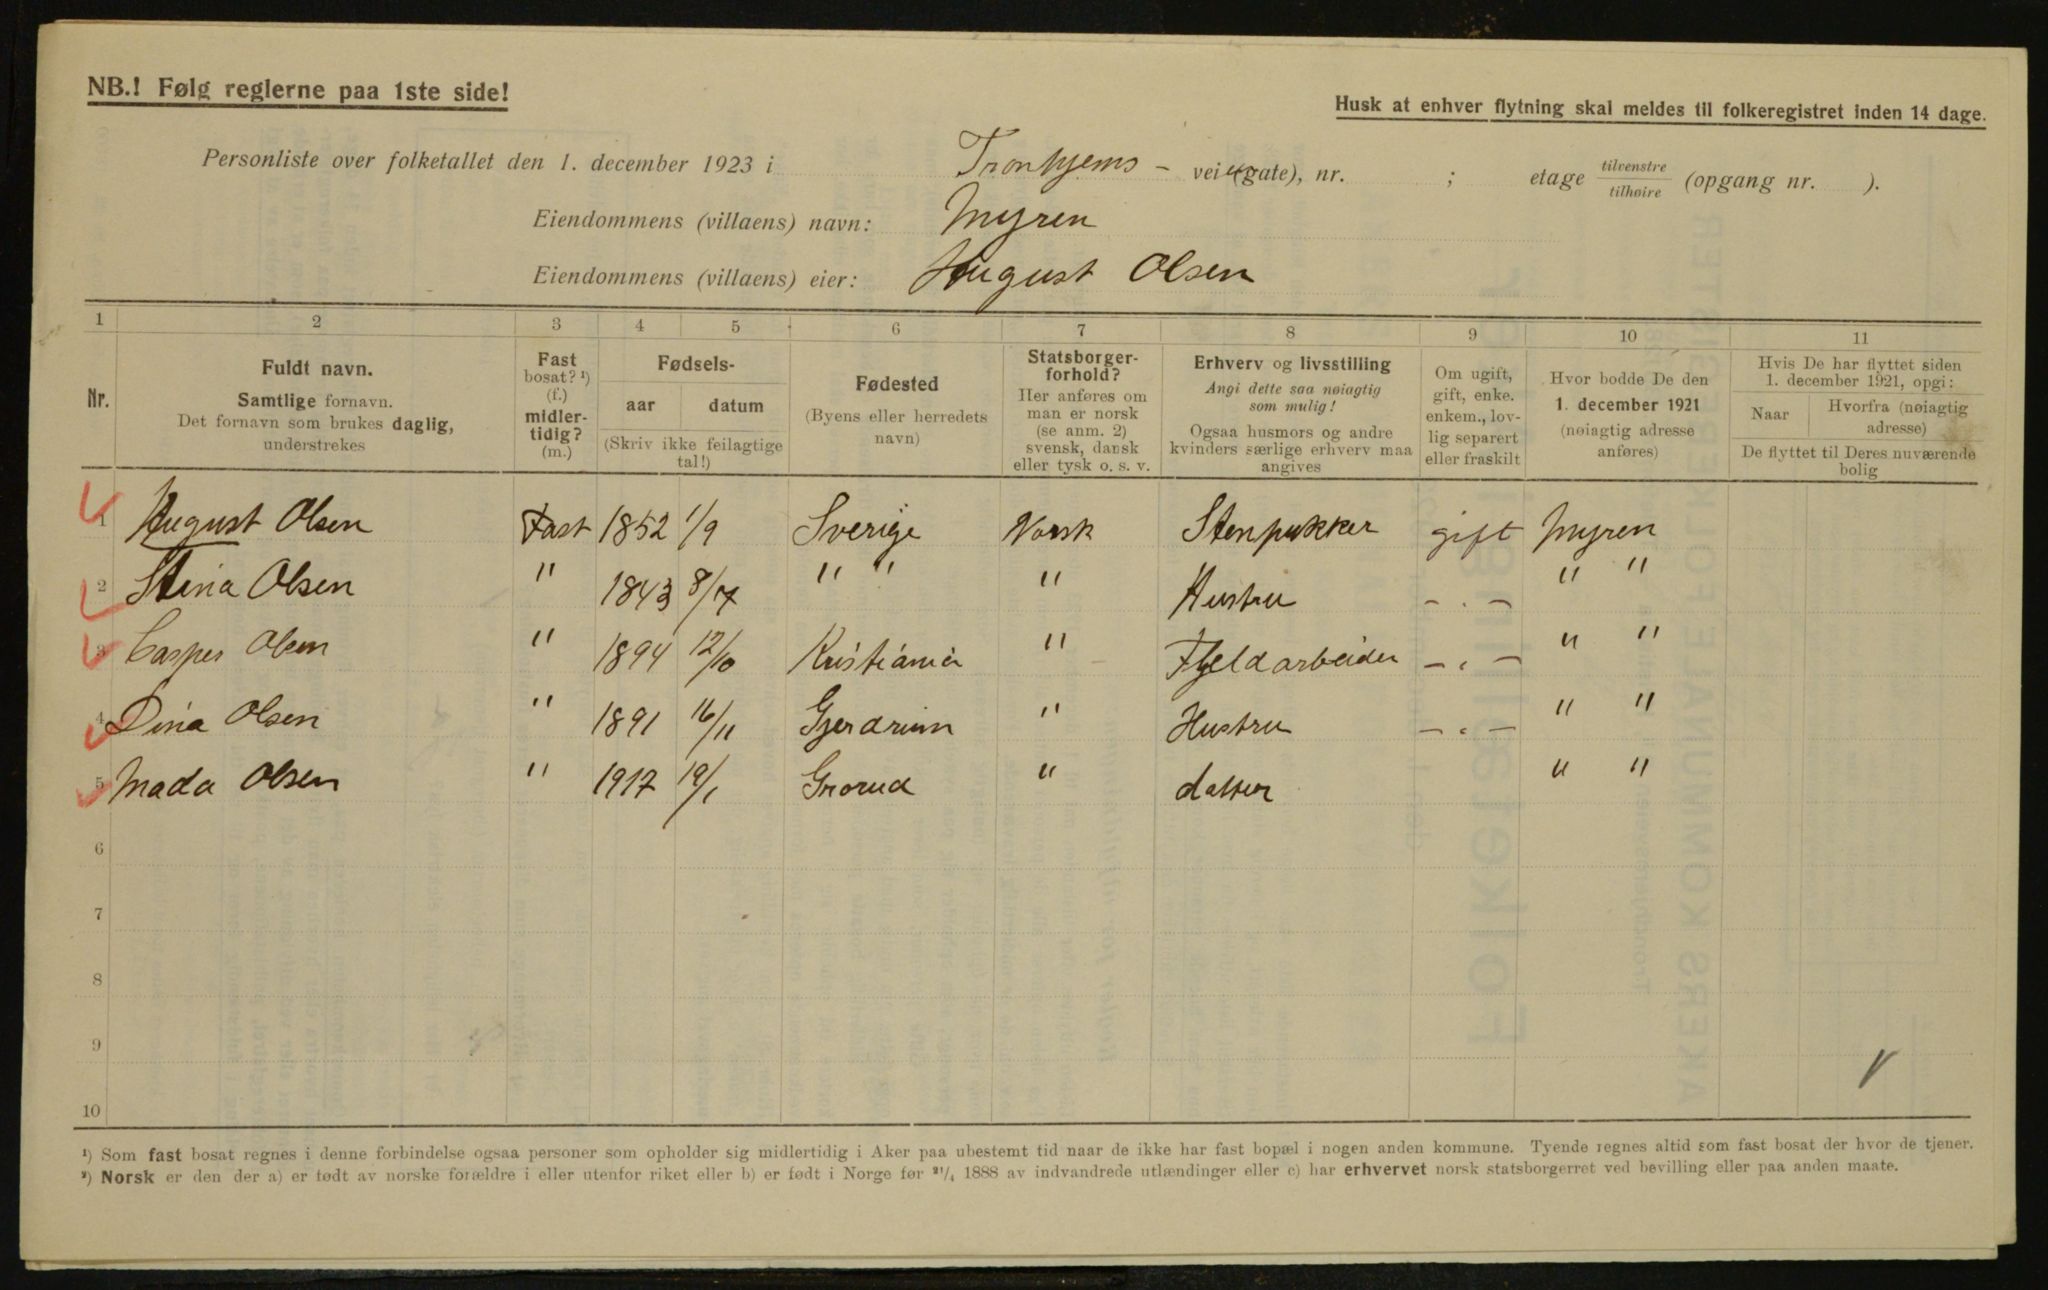 NB.! Følg reglerne paa 1ste side!
Husk at enhver flytning skal meldes til folkeregistret inden 14 dage.
Personliste over folketallet den 1. december 1923 i Tronhjems- vei (gate), nr. ; etage tilvenstre/tilhøire (opgang nr. ).
Eiendommens (villaens) navn: Myren
Eiendommens (villaens) eier: August Olsen
1 2 3 4 5 6 7 8 9 10 11
Nr.
Fuldt navn.
Samtlige fornavn.
Det fornavn som brukes daglig,
understrekes
Fast
bosat? ¹)
(f.)
midler-
tidig?
(m.)
Fødsels-
aar datum
(Skriv ikke feilagtige
tal!)
Fødested
(Byens eller herredets
navn)
Statsborger-
forhold?
Her anføres om
man er norsk
(se anm. 2)
svensk, dansk
eller tysk o. s. v.
Erhverv og livsstilling
Angi dette saa nøiagtig
som mulig!
Ogsaa husmors og andre
kvinders særlige erhverv maa
angives
Om ugift,
gift, enke.
enkem., lov-
lig separert
eller fraskilt
Hvor bodde De den
1. december 1921
(nøiagtig adresse
anføres)
Hvis De har flyttet siden
1. december 1921, opgi:
Naar
Hvorfra (nøiagtig
adresse)
De flyttet til Deres nuværende
bolig
1 August Olsen Fast 1852 1/9 Sverige Norsk Stenpukker gift Myren
2 Stina Olsen " 1843 8/7 " " " Hustru - . - " "
3 Casper Olsen " 1894 12/10 Kristiania " Fjeldarbeider - . - " "
4 Dina Olsen " 1891 16/11 Gjerdrum " Hustru - . - " "
5 Mada Olsen " 1917 19/1 Grorud " datter " "
6
7
8
9
10
¹) Som fast bosat regnes i denne forbindelse ogsaa personer som opholder sig midlertidig i Aker paa ubestemt tid naar de ikke har fast bopæl i nogen anden kommune. Tyende regnes altid som fast bosat der hvor de tjener.
²) Norsk er den der a) er født av norske forældre i eller utenfor riket eller b) er født i Norge før ²¹/₄ 1888 av indvandrede utlændinger eller c) har erhvervet norsk statsborgerret ved bevilling eller paa anden maate.